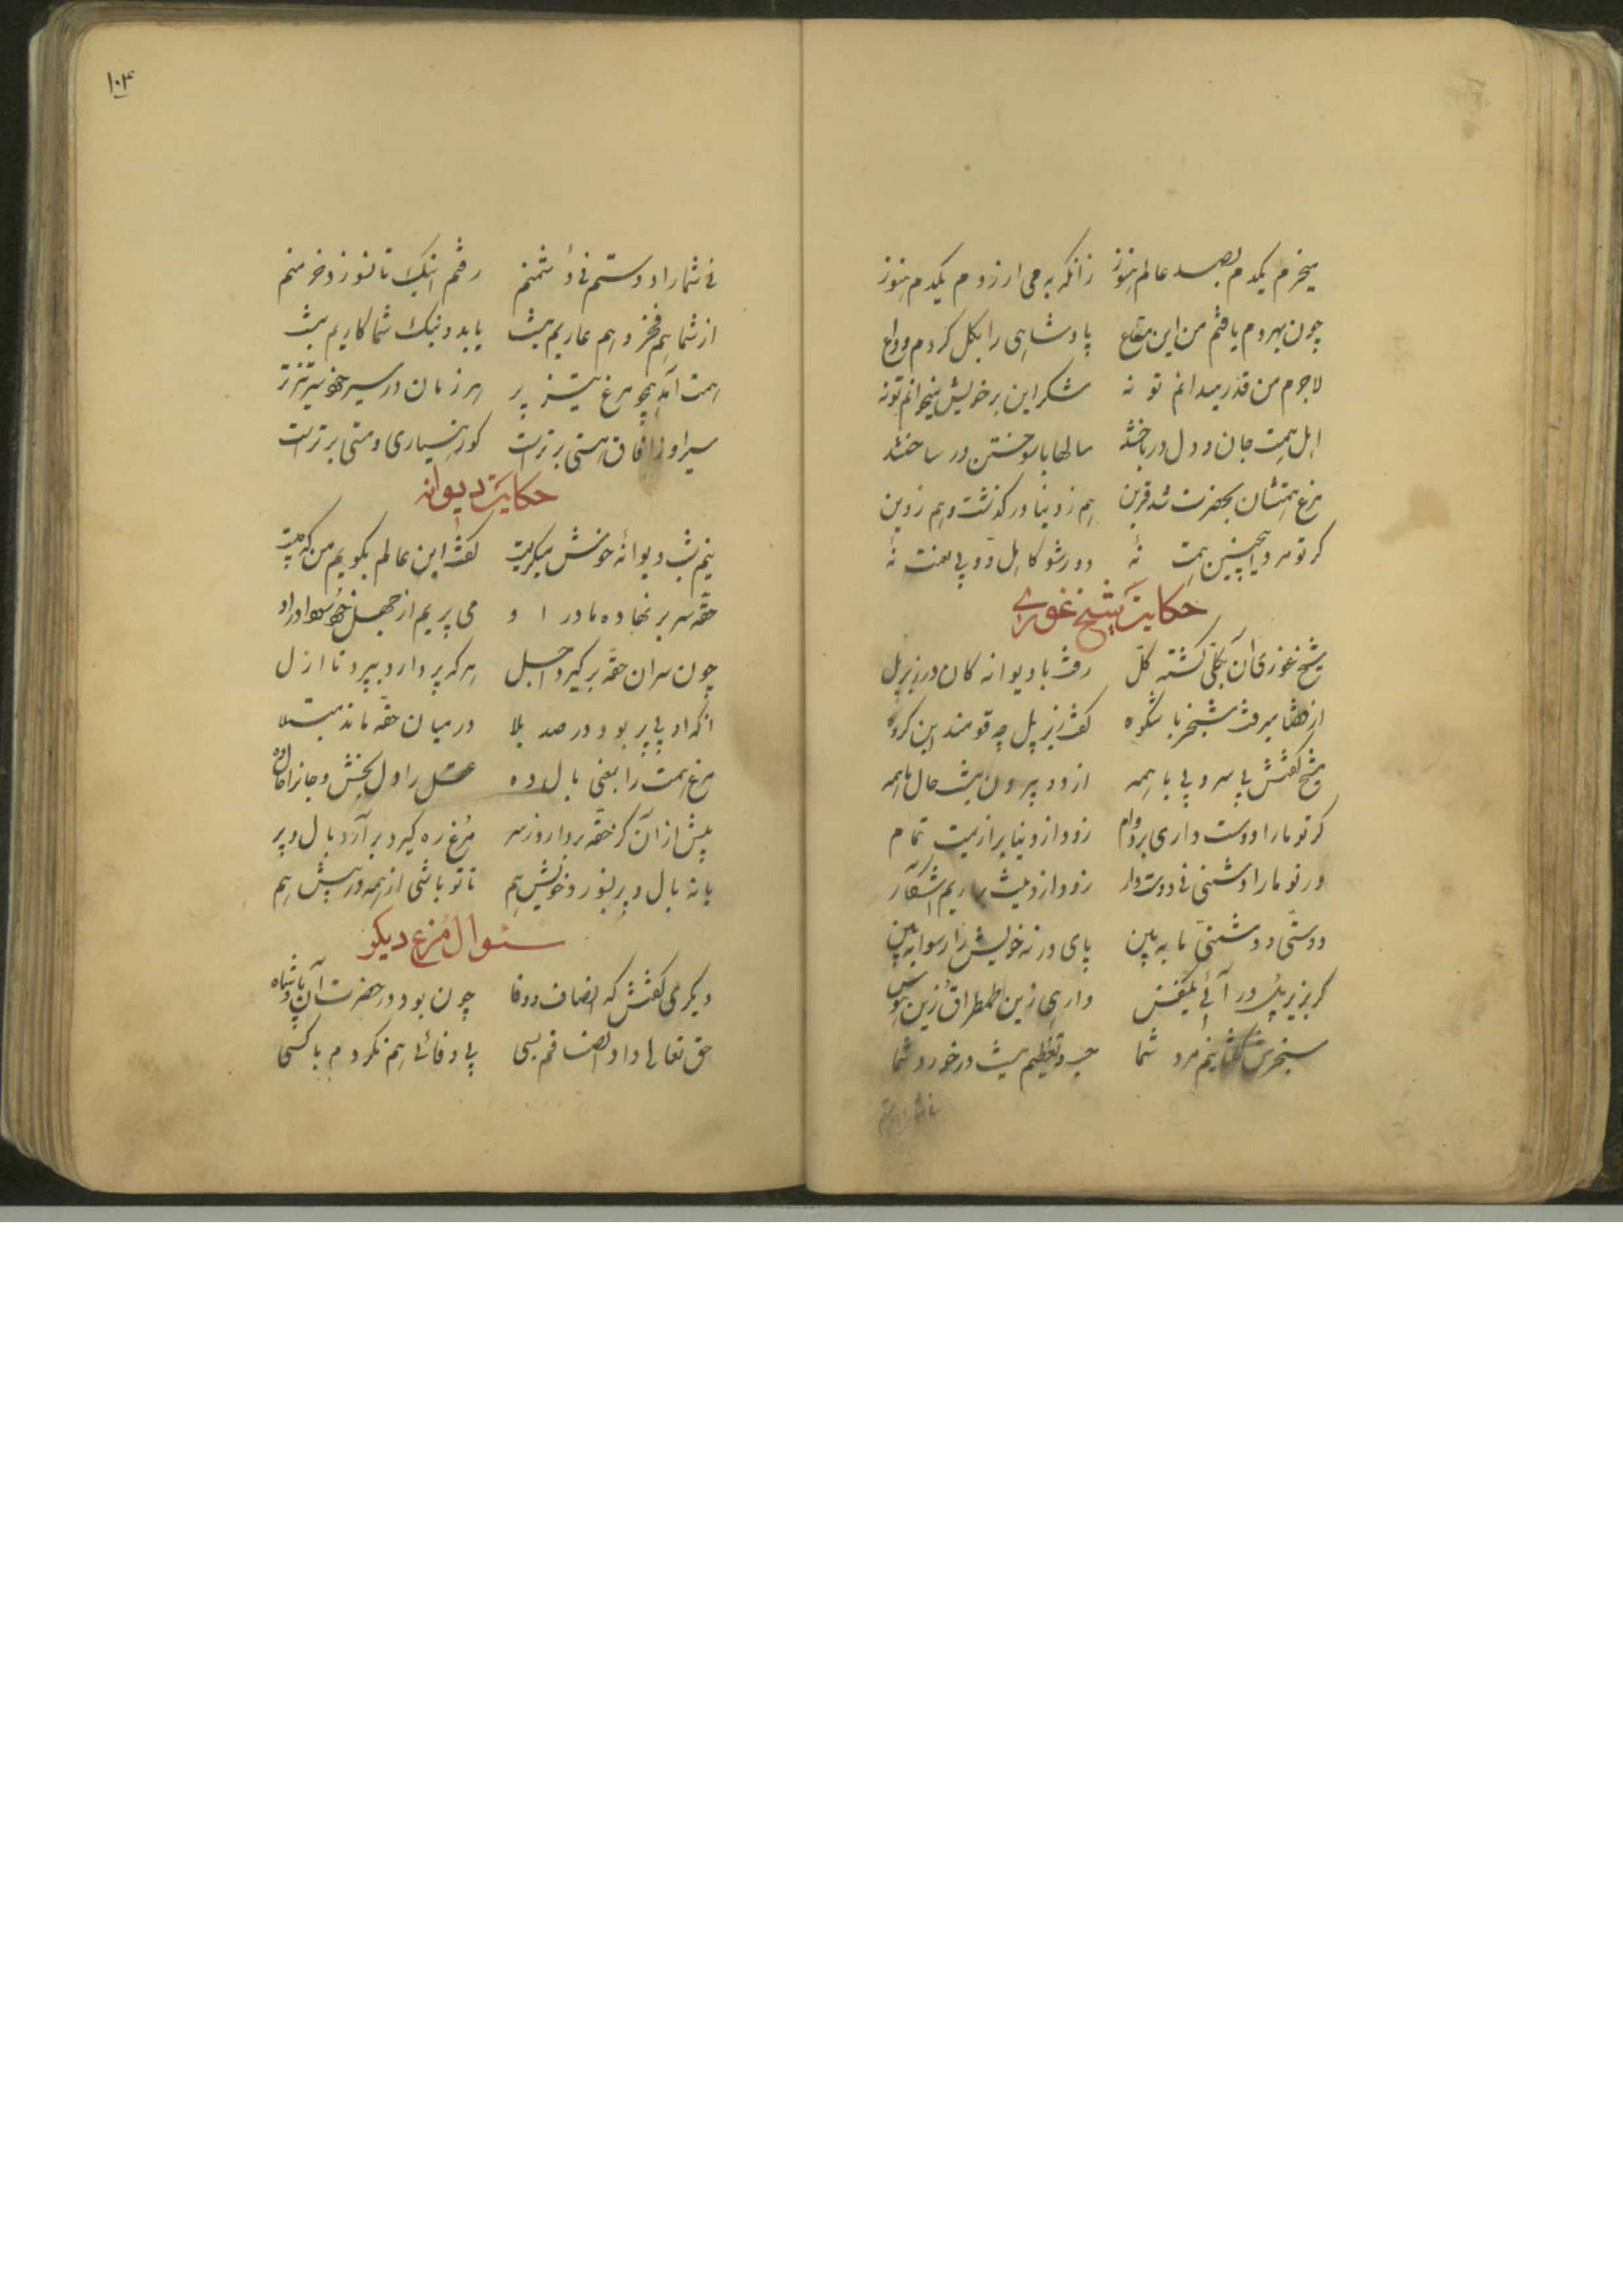 میخرم یکدم بصد عالم هنوز زانکه به می ارزدم یکدم هنوز
چون بمردم یافتم من این متاع پادشاهی را بکل کردم وداع
لاجرم من قدر میدانم تو نه شکر این بر خویش میخوانم تو نه
اهل همت جان و دل درباختند سالها با سوختن درساختند
مرغ همتشان بحضرت شد قرین هم ز دنیا درگذشت و هم ز دین
گر تو مرد اینچنین همت نهٔ دور شو کاهل و ولی نعمت نهٔ
حکایت شیخ غوری
شیخ غوری آن بکلی گشته کل رفت با دیوانه کان در زیر پل
از قضا میرفت سنجر با شکوه گفت زیر پل چه قومند این گروه
شیخ گفتش بی سر و بی پا همه از دو بیرون نیست حال ما همه
گر تو ما را دوست داری بر دوام زود از دنیا برآریمت تمام
ور تو ما را دشمنی نی دوست دار زود از دینت برآریم آشکار
دوستی و دشمنی ما به بین پای در نه خویش را رسوا به بین
گر بزیر پل در آئی یکنفس وارهی زین طمطراق و زین هوس
سنجرش گفتا نیم مرد شما حب و بغضم نیست در خورد شما
نی شما را دوستم نی دشمنم رفتم اینک تا نسوزد خرمنم
از شما هم فخر و هم عاریم نیست با بد و نیک شما کاریم نیست
همت آمد همچو مرغ تیز پر هر زمان در سیر خود سر تیزتر
سیر او ز آفاق هستی برترست کو ز هشیاری و مستی برترست
حکایت دیوانه
نیم شب دیوانهٔ خوش میگریست گفت این عالم بگویم من که چیست
حقه سر بر نهاده ما در او می پزیم از جهل خود سودا در او
چون سر این حقه برگیرد اجل هر که پر دارد بپرد تا ازل
آنکه او بی پر بود در صد بلا در میان حقه ماند مبتلا
مرغ همت را بمعنی بال ده عقل را دل بخش و جان را حال ده
پیش از آن کز حقه بردارند سر مرغ ره گیرد برآرد بال و پر
یا نه بال و پر بسوز و خویش هم تا تو باشی از همه در پیش هم
سئوال مرغ دیگر
دیگری گفتش که انصاف و وفا چون بود در حضرت آن پادشاه
حق تعالی داد انصافم بسی بی وفائی هم نکردم با کسی
۱۰۴